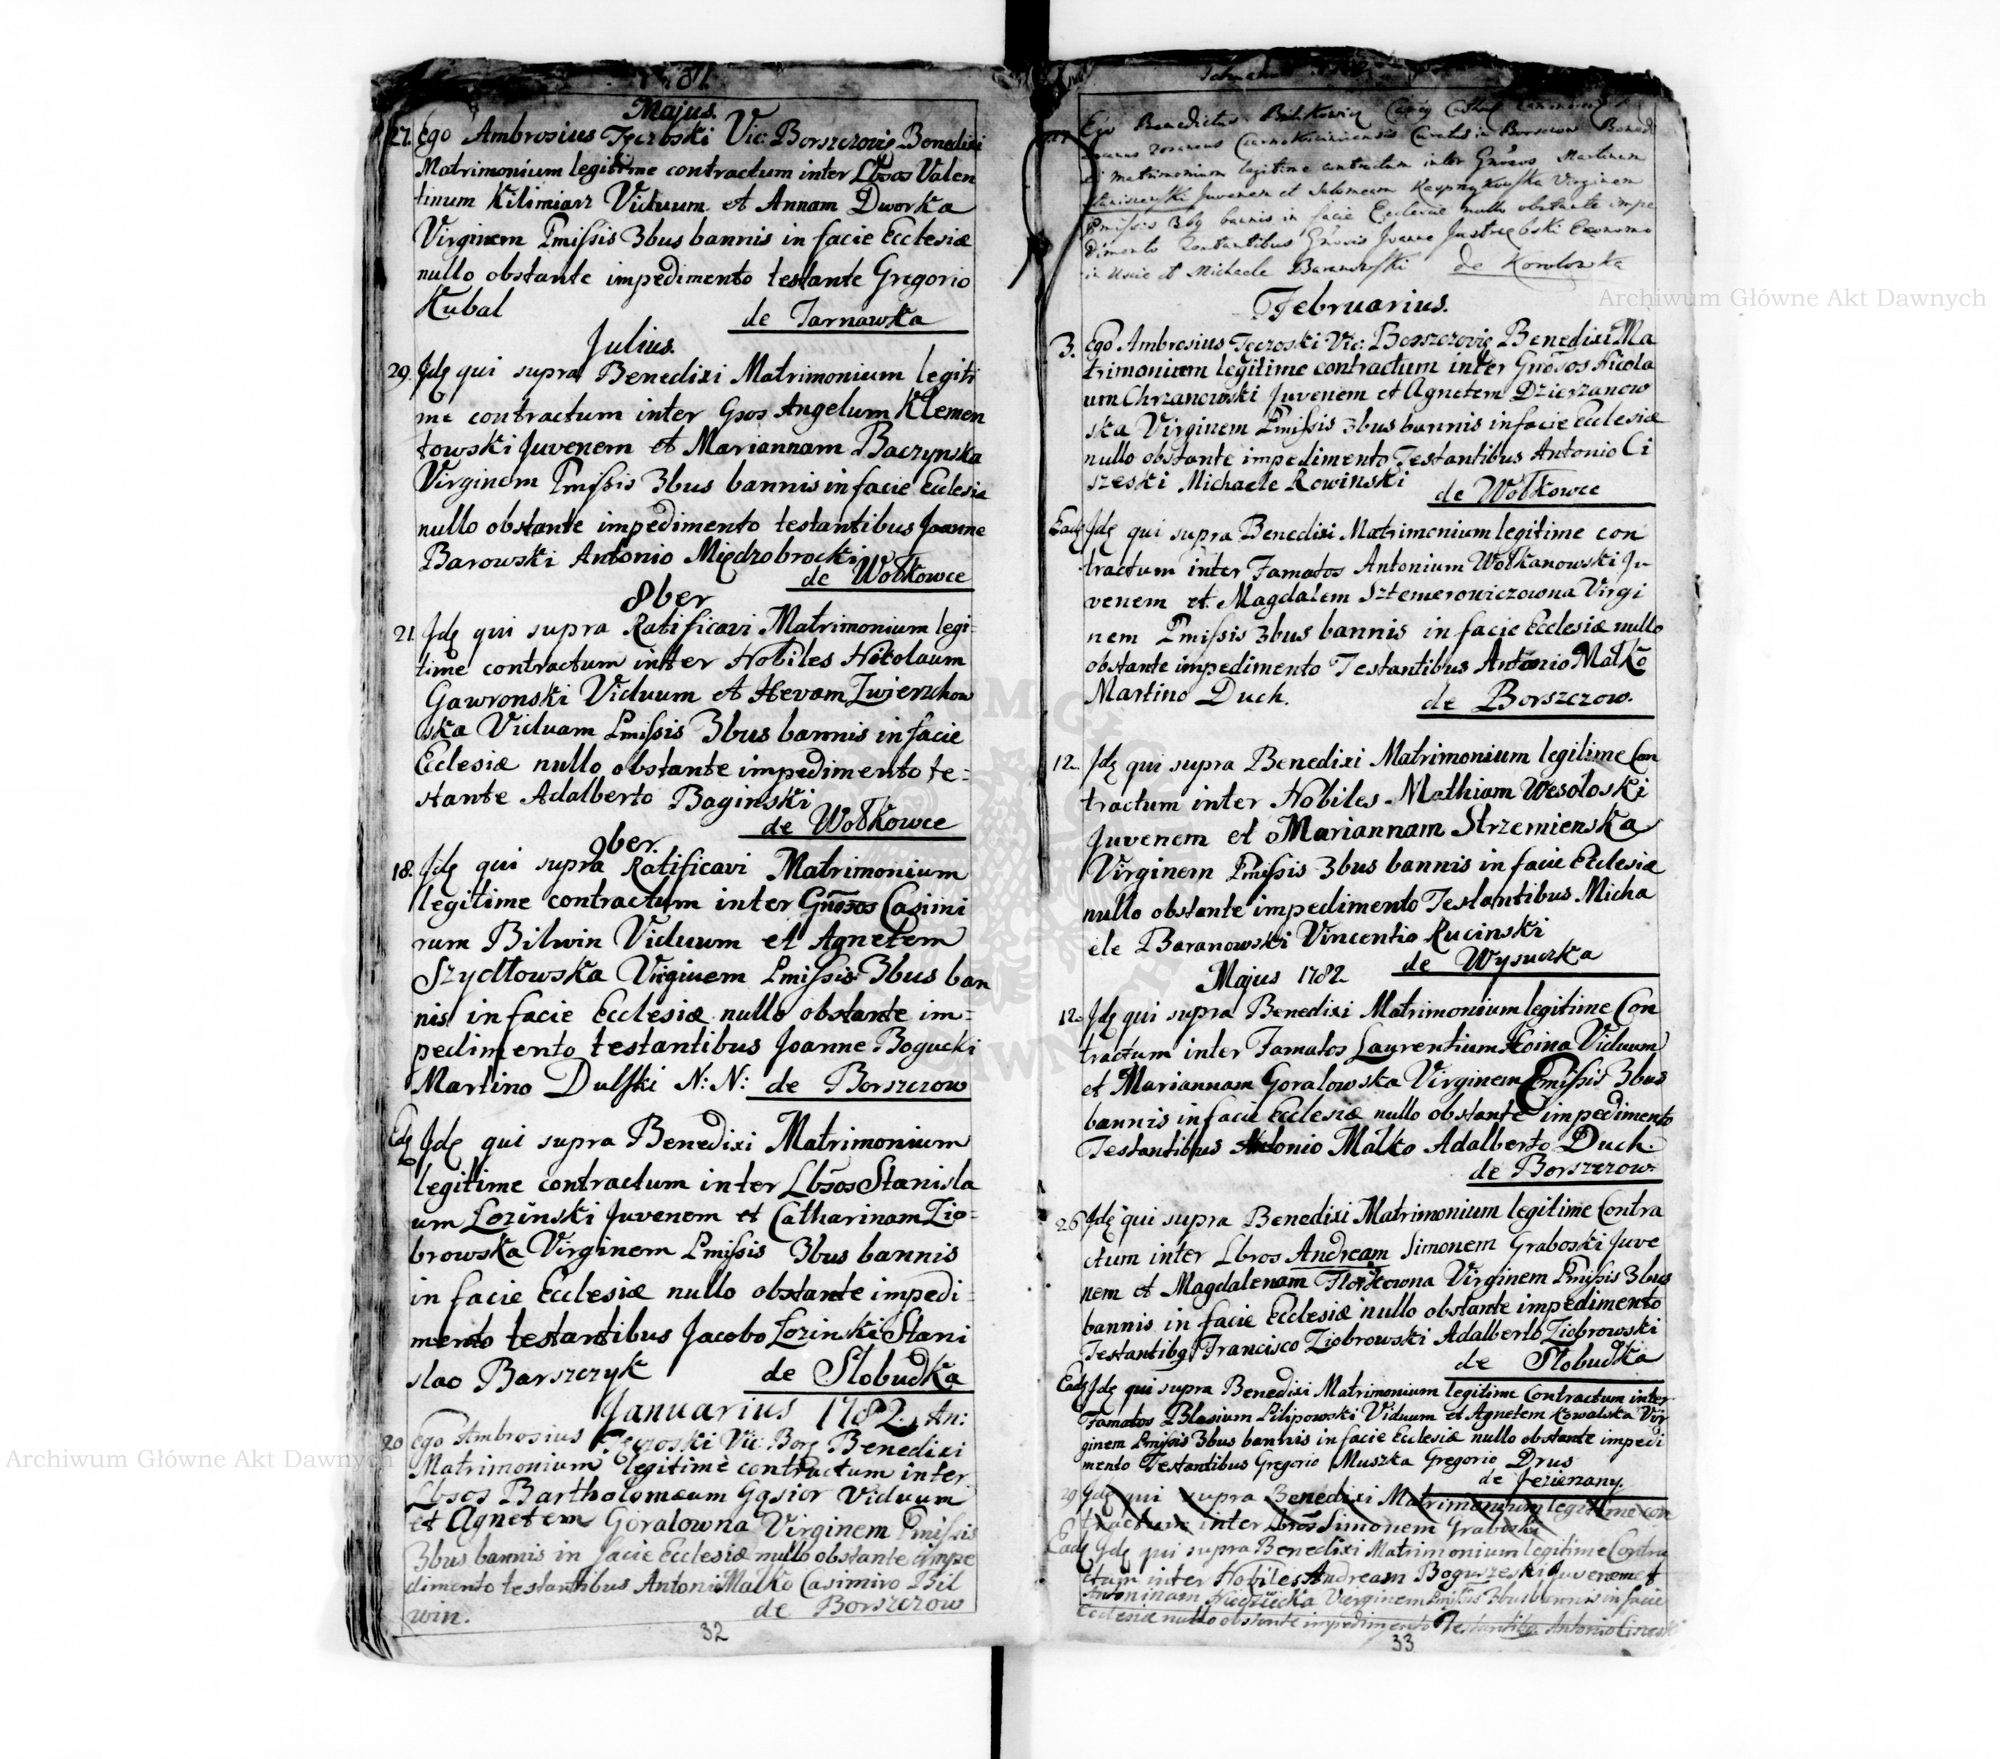 1781.
Majus.
27. Ego Ambrosius Tęczoski Vic: Borszczovię Benedixi
Matrimonium legitime contractum inter Lbsos Valen
tinum Kilimiarz Viduum et Annam Dworka
Virginem Pmissis 3bus bannis in facie Ecclesiæ
nullo obstante impedimento testante Gregorio
Kubal de Tarnawka
Julius.
29. Jdę qui supra Benedixi Matrimonium legiti
me contractum inter Gsos Angelum Klemen
towski Juvenem et Mariannam Baczynska
Virginem Pmissis 3bus bannis in facie Ecclesiæ
nullo obstante impedimento testantibus Joanne
Barowski Antonio Międzobrocki
de Wołkowce
8ber
21 Jdę qui supra Ratificavi Matrimonium legi=
time contractum inter Nobiles Nicolaum
Gawronski Viduum et Hevam Zwierzchow
ska Viduam Pmissis 3bus bannis in facie
Ecclesiæ nullo obstante impedimento te=
stante Adalberto Baginski
de Wołkowce
9ber.
18. Jdę qui supra Ratificavi Matrimonium
legitime contractum inter Gnosos Casimi
rum Bilwin Viduum et Agnetem
Szydłowska Virginem Pmissis 3bus ban
nis in facie Ecclesiæ nullo obstante im=
pedimento testantibus Joanne Bogucki
Martino Dulski N: N: de Borszczow
Eadę Jdę qui supra Benedixi Matrimonium
legitime contractum inter Lbsos Stanisla
um Lozinski Juvenem et Catharinam Zio=
browska Virginem Pmissis 3bus bannis
in facie Ecclesiæ nullo obstante impedi=
mento testantibus Jacobo Lozinski Stani
slao Barszczyk de Slobudka
Januarius 1782. An:
20 Ego Ambrosius Tęczoski Vic: Borę Benedixi
Matrimonium legitime contractum inter
Lbsos Bartholomæum Gąsior Viduum
et Agnetem Goralowna Virginem Pmissis
3bus bannis in facie Ecclesiæ nullo obstante impe
dimento testantibus Antoni Malko Casimiro Bil
win. de Borszczow
32
Ego Benedictus
Curatus in Borszczow Bened
xi matrimonium legitime contractum inter Gnosos Martinum
Juvenem et Salomeam Virginem
Pmissis 3bq bannis in facie Ecclesiæ nullo obstante impe
dimento Testantibus Gnosis Joanne Jastrzębski Economo
et Michaele Baranowski de Korolowka
Februarius.
3. Ego Ambrosius Tęczoski Vic: Borszczovię Benedixi Ma
trimonium legitime contractum inter Gnosos Nicola
um Chrzanowski Juvenem et Agnetem Dzierzanow
ska Virginem Pmissis 3bus bannis in facie Ecclesiæ
nullo obstante impedimento Testantibus Antonio Ci
szeski Michaele Rowinski de Wołkowce
Eadę Jdę qui supra Benedixi Matrimonium legitime con
tractum inter Famatos Antonium Wołkanowski Ju
venem et Magdalem Sztemerowiczowna Virgi
nem Pmissis 3bus bannis in facie Ecclesiæ nullo
obstante impedimento Testantibus Antonio Malko
Martino Duch. de Borszczow.
12. Jdę qui supra Benedixi Matrimonium legitime Con
tractum inter Nobiles Mathiam Wesoloski
Juvenem et Mariannam Strzemienska
Virginem Pmissis 3bus bannis in facie Ecclesiæ
nullo obstante impedimento Testantibus Micha
ele Baranowski Vincentio Rucinski
de Wysuczka
Majus 1782
12. Jdę qui supra Benedixi Matrimonium legitime Con
tractum inter Famatos Laurentium Koina Viduum
et Mariannam Goralowska Virginem Pmissis 3bus
bannis in facie Ecclesiæ nullo obstante impedimento
Testantibus Antonio Malko Adalberto Duch.
de Borszczow
26 Jdę qui supra Benedixi Matrimonium legitime Contra
ctum inter Lbros Andream Simonem Graboski Juve
nem et Magdalenam Florkowna Virginem Pmissis 3bus
bannis in facie Ecclesiæ nullo obstante impedimento
Testantibq Francisco Ziobrowski Adalberto Ziobrowski
de Slobudka
Eadę Jdę qui supra Benedixi Matrimonium legitime Contractum inter
Famatos Blasium Pilipowski Viduum et Agnetem Kowalska Vir
ginem Pmissis 3bus bannis in facie Ecclesiæ nullo obstante impedi
mento Testantibus Gregorio Muszka Gregorio Drus
de Jezierzany.
29 Jdę qui supra Benedixi Matrimonium legitime con
tractum inter Lbros Simonem Graboski
Eadę Jdę qui supra Benedixi Matrimonium legitime Contra
ctum inter Nobiles Andream Boguszeski Juvenem et
Antoninam Niedzwiecka Virginem Pmissis 3bus bannis in facie
Ecclesiæ nullo obstante impedimento Testantibq Antonio Ciszeski
33
Archiwum Główne Akt Dawnych
Archiwum Główne Akt Dawnych